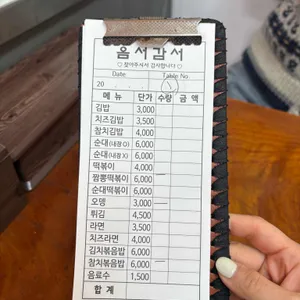 음서감서
♡ 찾아주셔서 감사합니다 ♡
Date Table No
20
메뉴 단가 수량 금액
김밥 3,000
치즈김밥 3,500
참치김밥 4,000
순대(내장O) 6,000
순대(내장X) 6,000
떡볶이 4,000
짬뽕떡볶이 6,000
순대떡볶이 6,000
오뎅 3,000
튀김 4,500
라면 3,500
치즈라면 4,000
김치볶음밥 6,000
참치볶음밥 6,000
음료수 1,500
합계